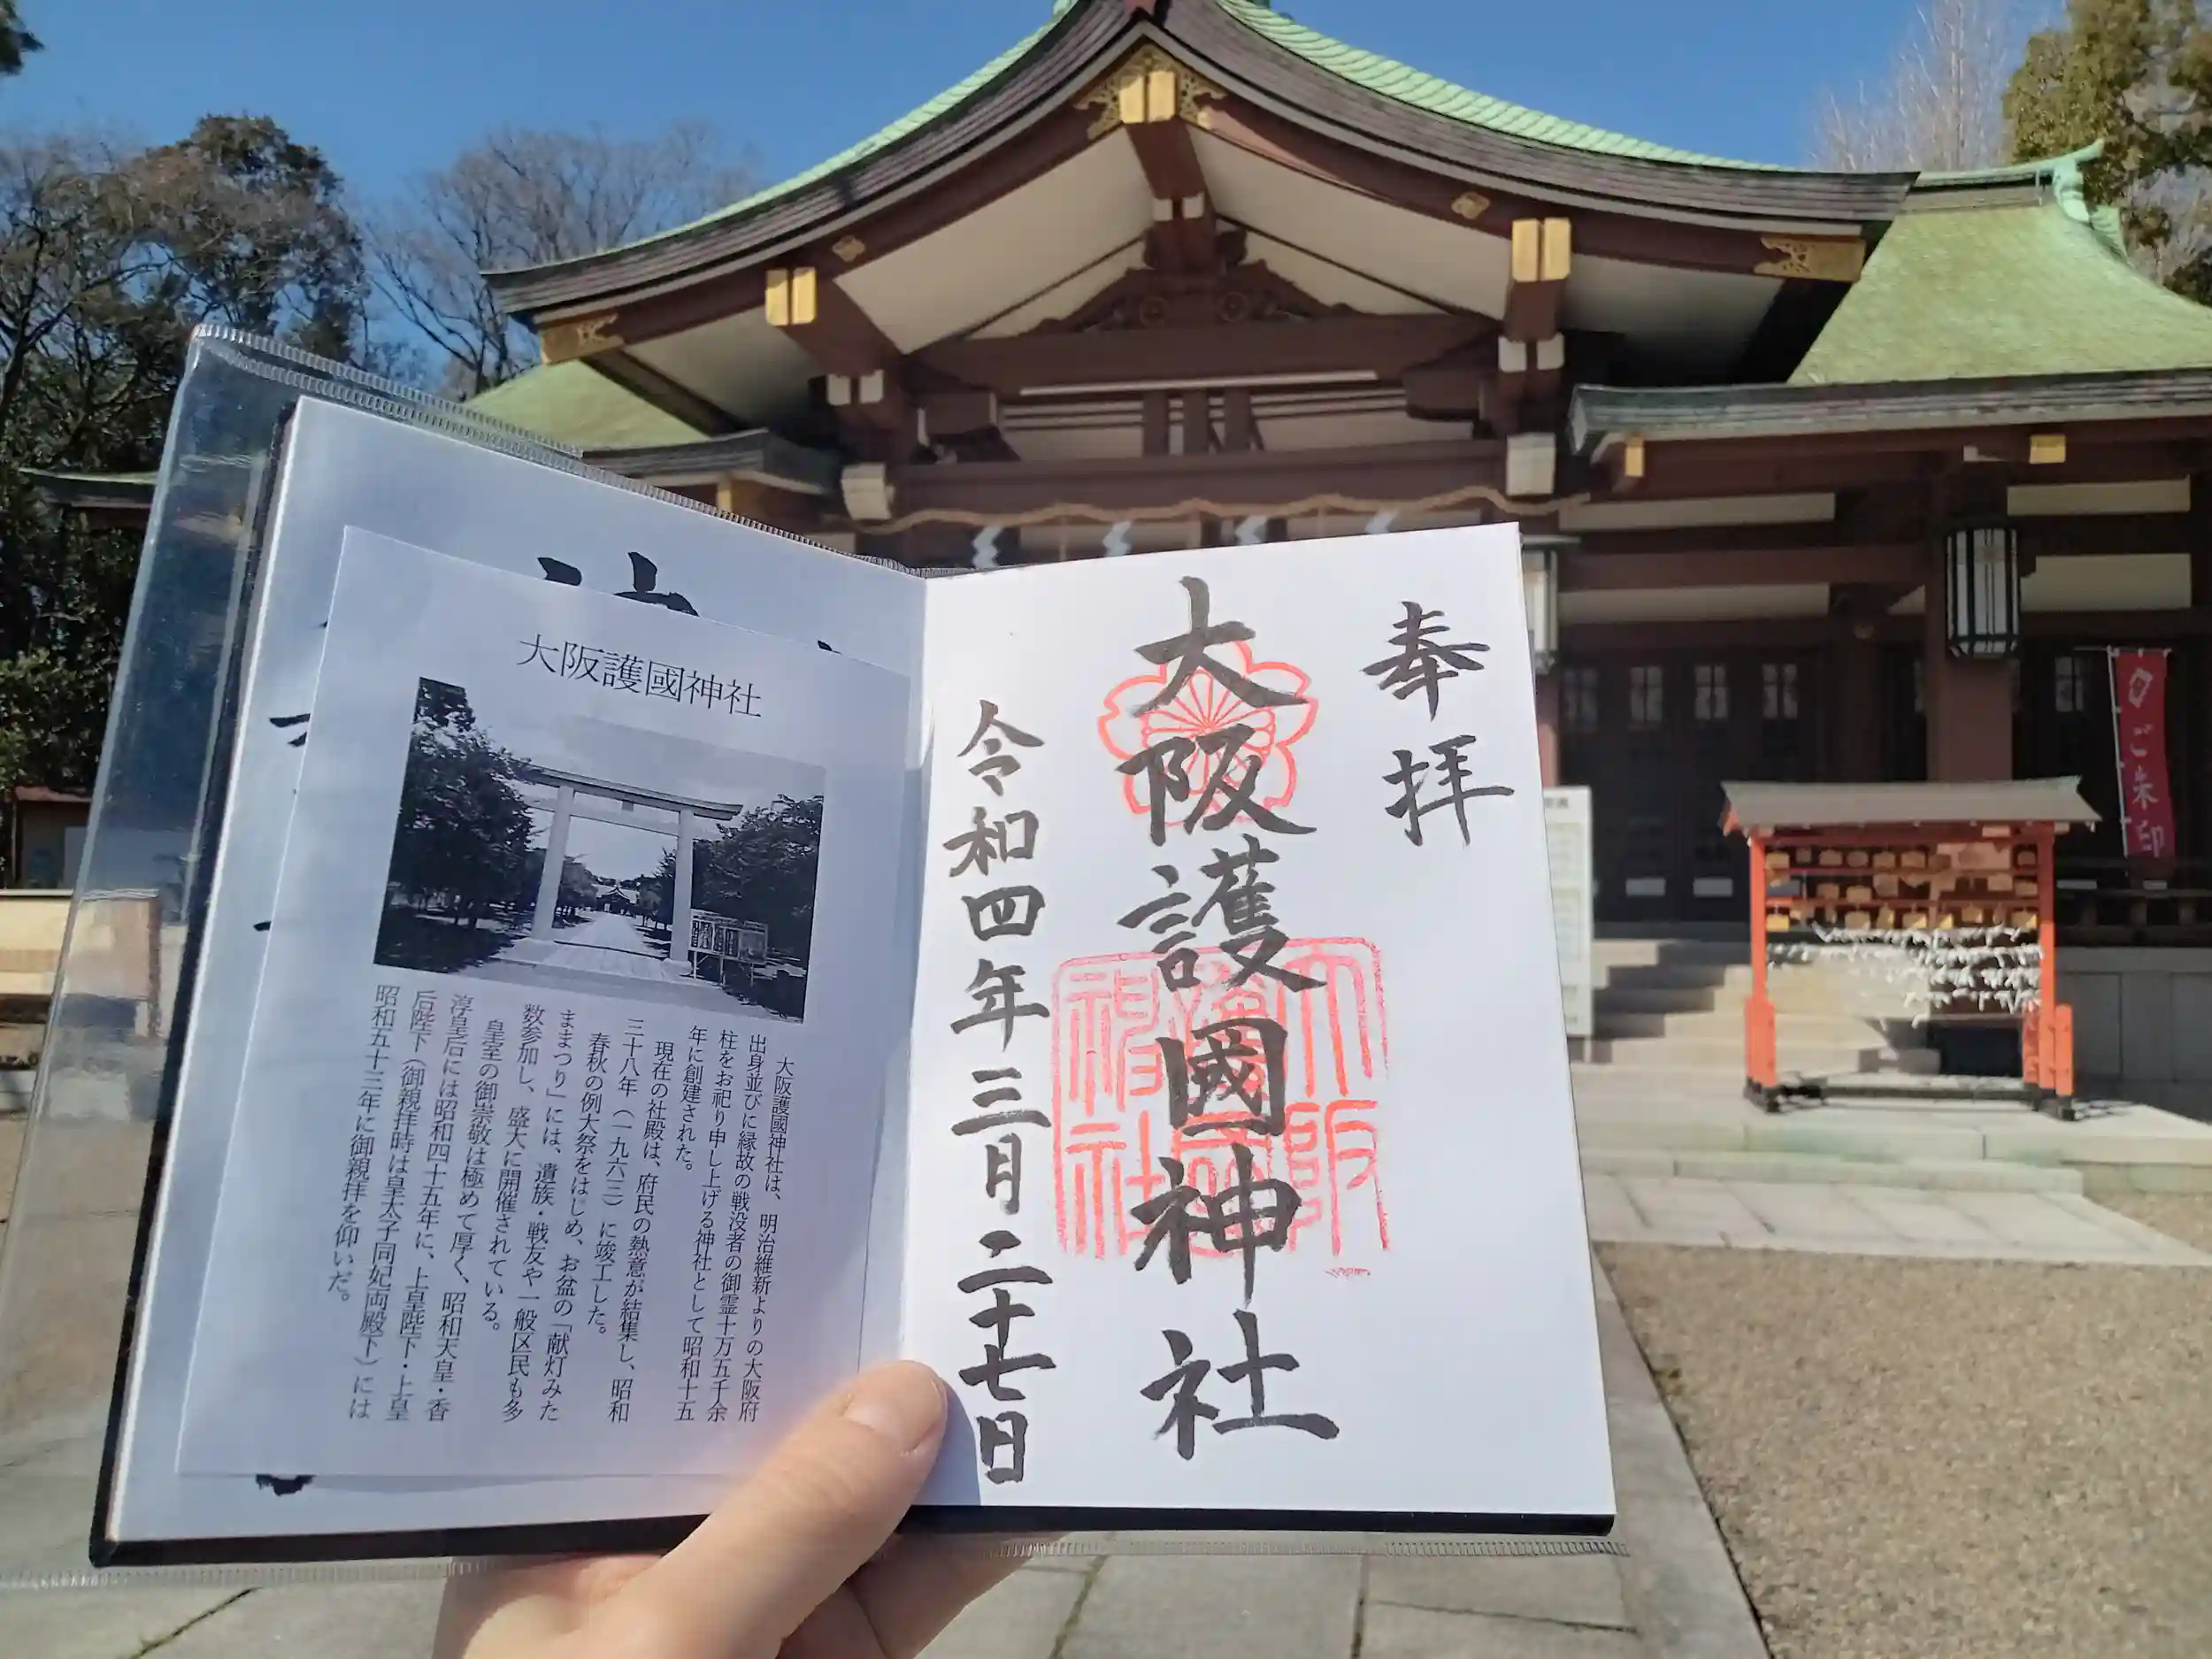 奉拝
大阪護國神社
令和四年三月二十七日
大阪護國神社
大阪護國神社は、明治維新よりの大阪府
出身並びに縁故の戦没者の御霊十万五千余
柱をお祀り申し上げる神社として昭和十五
年に創建された。
現在の社殿は、府民の熱意が結集し、昭和
三十八年（一九六三）に竣工した。
春秋の例大祭をはじめ、お盆の「献灯みた
ままつり」には、遺族・戦友や一般区民も多
数参加し、盛大に開催されている。
皇室の御崇敬は極めて厚く、昭和天皇・香
淳皇后には昭和四十五年に、上皇陛下・上皇
后陛下（御親拝時は皇太子同妃両殿下）には
昭和五十三年に御親拝を仰いだ。
大阪護國神社
ご朱印